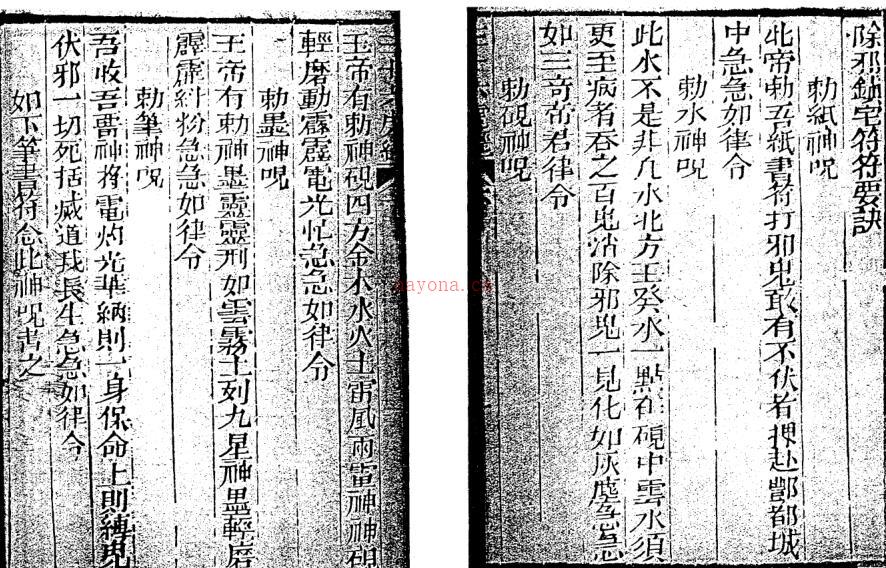 除邪鎮宅符符要訣
勅紙神呪
北帝勅吾紙書符打邪鬼敢有不伏者押赴酆都城
中急急如律令
勅水神呪
此水不是非凡水北方壬癸水一點在硯中雲水須
更至病者吞之百鬼消除邪鬼一見化如灰塵急急
如三奇帝君律令
勅硯神呪
玉帝有勅神硯四方金木水火土雷風雨電神神硯
輕磨動霹靂電光忙急急如律令
勅墨神呪
王帝有勅神墨靈靈刑如雲霧上列九星神墨輕磨
霹靂糾粉急急如律令
勅筆神呪
吾收吾雷神將電灼光華納則一身保命上則縛鬼
伏邪一切死括滅道我長生急急如律令
如下筆書符念此神呪書之
nayona.cn